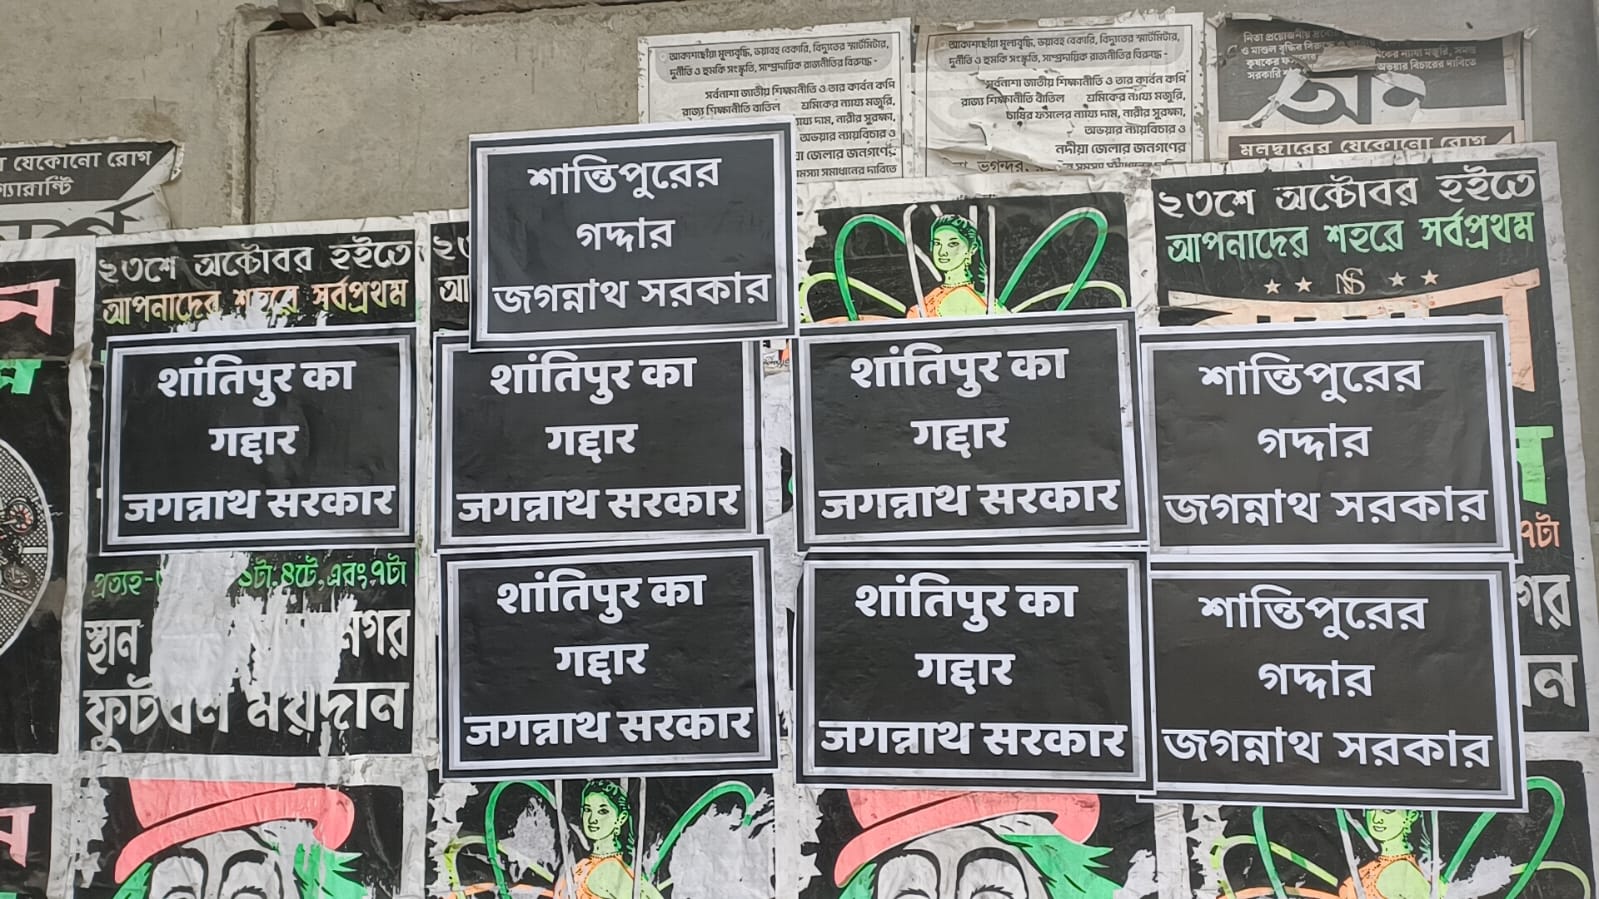 আকাশছোঁয়া মূল্যবৃদ্ধি, ভয়াবহ বেকারি, বিদ্যুতের স্মার্টমিটার,
দুর্নীতি ও হুমকি সংস্কৃতি, সাম্প্রদায়িক রাজনীতির বিরুদ্ধে -
সর্বনাশা জাতীয় শিক্ষানীতি ও তার কার্বন কপি
রাজ্য শিক্ষানীতি বাতিল শ্রমিকের ন্যায্য মজুরি,
ন্যায্য দাম, নারীর সুরক্ষা,
অভয়ার ন্যায়বিচার ও
জেলার জনগণের
সমস্যা সমাধানের দাবিতে
আকাশছোঁয়া মূল্যবৃদ্ধি, ভয়াবহ বেকারি, বিদ্যুতের স্মার্টমিটার,
দুর্নীতি ও হুমকি সংস্কৃতি, সাম্প্রদায়িক রাজনীতির বিরুদ্ধে -
সর্বনাশা জাতীয় শিক্ষানীতি ও তার কার্বন কপি
রাজ্য শিক্ষানীতি বাতিল শ্রমিকের ন্যায্য মজুরি,
চাষির ফসলের ন্যায্য দাম, নারীর সুরক্ষা,
অভয়ার ন্যায়বিচার ও
নদীয়া জেলার জনগণের
ভগন্দর,
সমাধানের দাবিতে
নিত্য প্রয়োজনীয়
ও মাশুল বৃদ্ধির
ন্যায্য মজুরি, সমস্ত
কৃষকের
অভয়ার বিচারের দাবিতে
সরকারি
মলদ্বারের যেকোনো রোগ
যেকোনো রোগ
গ্যারান্টি
২৩শে অক্টোবর হইতে
আপনাদের শহরে সর্বপ্রথম
শান্তিপুরের
গদ্দার
জগন্নাথ সরকার
২৩শে অক্টোবর হইতে
আপনাদের শহরে সর্বপ্রথম
NS
शांतिपुर का
गद्दार
जगन्नाथ सरकार
शांतिपुर का
गद्दार
जगन्नाथ सरकार
शांतिपुर का
गद्दार
जगन्नाथ सरकार
শান্তিপুরের
গদ্দার
জগন্নাথ সরকার
প্রত্যহ-
১টা, ৪টে, এবং ৭টা
স্থান
নগর
ফুটবল ময়দান
शांतिपुर का
गद्दार
जगन्नाथ सरकार
शांतिपुर का
गद्दार
जगन्नाथ सरकार
শান্তিপুরের
গদ্দার
জগন্নাথ সরকার
৭টা